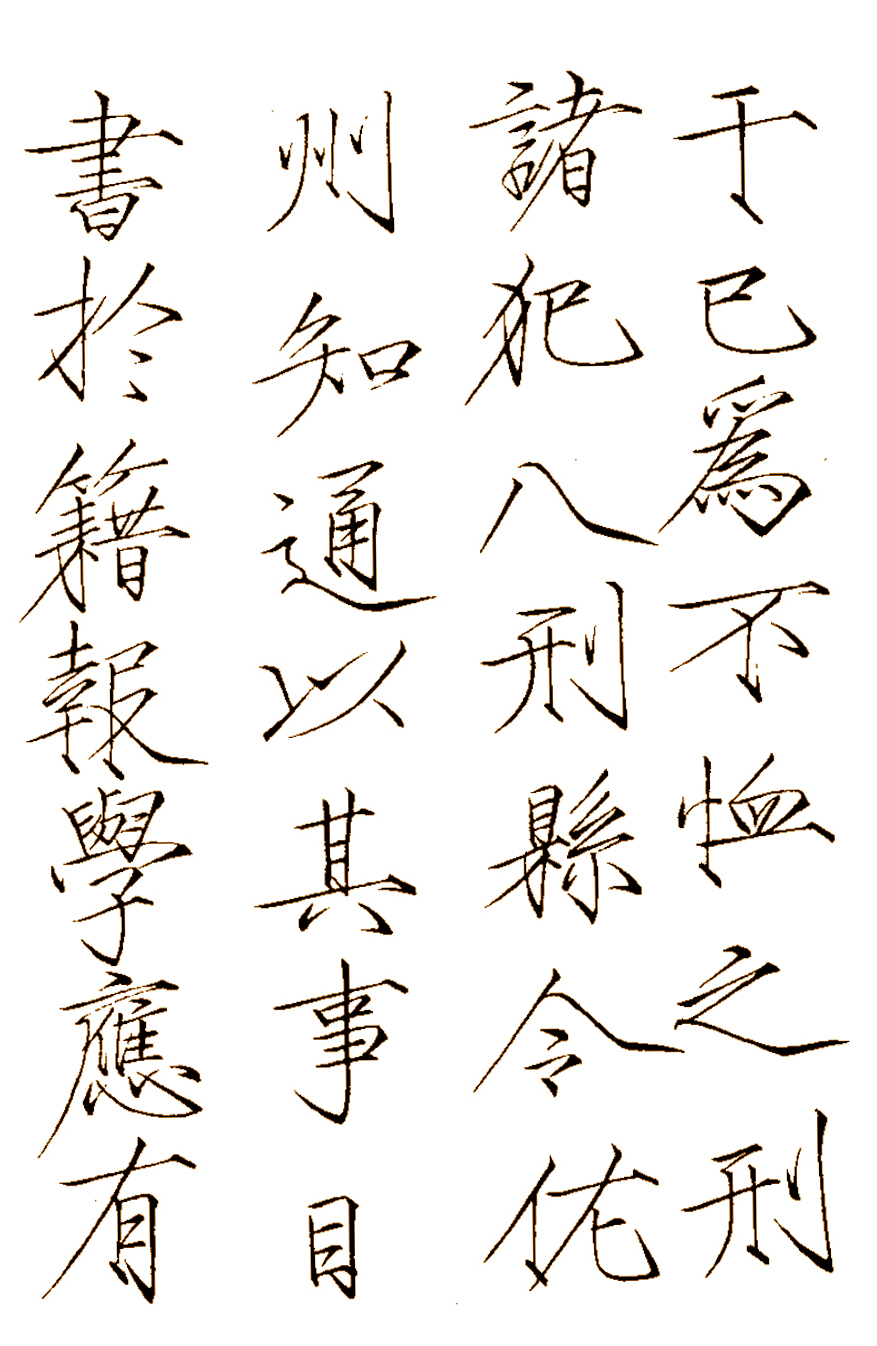 干己爲不恤之刑
諸犯八刑縣令佐
州知通以其事目
書於籍報學應有